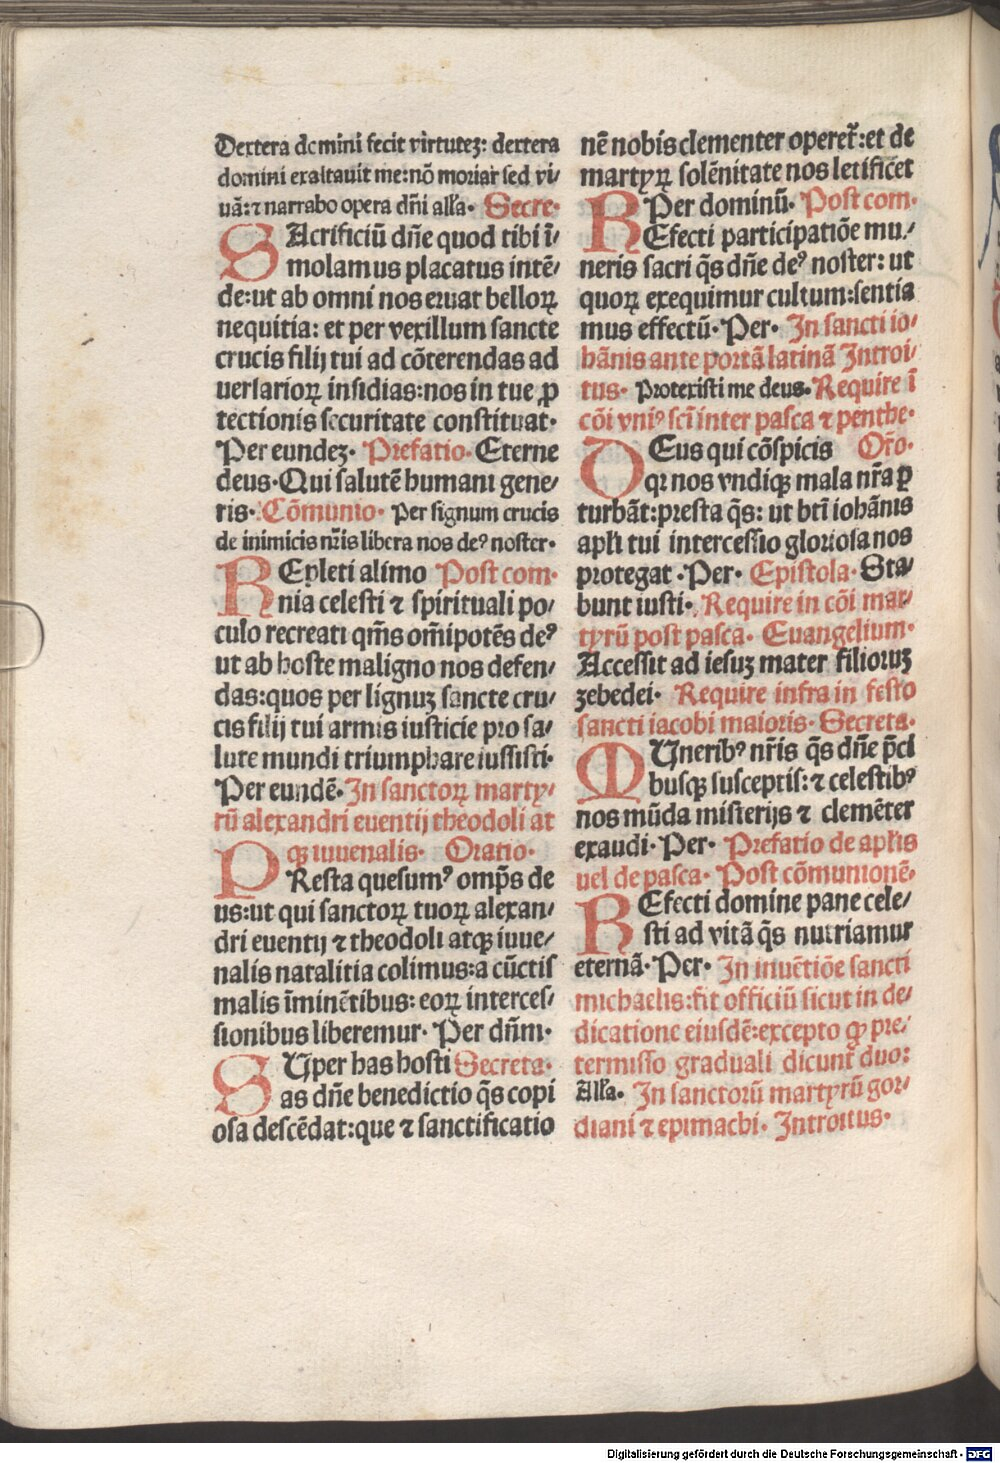 Dextera domini fecit virtuteꝫ: dextera
domini exaltauit me: nō moriar sed vi⸗
uā: ⁊ narrabo opera dñi alľa. Secre.
SAcrificiū dñe quod tibi ī⸗
molamus placatus intē⸗
de: ut ab omni nos eruat belloꝝ
nequitia: et per vexillum sancte
crucis filij tui ad cōterendas ad
uersarioꝝ insidias: nos in tue ꝓ
tectionis securitate constituat.
Per eundeꝫ. Prefatio. Eterne
deus. Qui salutē humani gene⸗
ris. Cōmunio. Per signum crucis
de inimicis nr̄is libera nos deꝰ noster.
REpleti alimo Post com.
nia celesti ⁊ spirituali po⸗
culo recreati qm̄s om̄ipotēs deꝰ
ut ab hoste maligno nos defen⸗
das: quos per lignuꝫ sancte cru⸗
cis filij tui armis iusticie pro sa⸗
lute mundi triumphare iussisti.
Per eundē. In sanctoꝝ marty⸗
rū alexandri euentij theodoli at
qꝫ iuuenalis. Oratio.
PResta quesumꝰ omp̄s de
us: ut qui sanctoꝝ tuoꝝ alexan⸗
dri euentij ⁊ theodoli atqꝫ iuue⸗
nalis natalitia colimus: a cūctis
malis īminētibus: eoꝝ interces⸗
sionibus liberemur. Per dn̄m.
SUper has hosti Secreta.
as dñe benedictio q̄s copi
osa descēdat: que ⁊ sanctificatio
nē nobis clementer operet̄: et de
martyꝝ solēnitate nos letificet
Per dominū. Post com.
REfecti participatiōe mu⸗
neris sacri q̄s dñe deꝰ noster: ut
quoꝝ exequimur cultum: sentia
mus effectū. Per. In sancti io⸗
hānis ante portā latinā Introi⸗
tus. Protexisti me deus. Require ī
cōi vniꝰ scī inter pasca ⁊ penthe.
DEus qui cōspicis Or̄o.
qꝛ nos vndiqꝫ mala nr̄a ꝑ
turbāt: presta q̄s: ut btī iohānis
apl̄i tui intercessio gloriosa nos
protegat. Per. Epistola. Sta⸗
bunt iusti. Require in cōi mar⸗
tyrū post pasca. Euangelium.
Accessit ad iesuꝫ mater filioruꝫ
zebedei. Require infra in festo
sancti iacobi maioris. Secreta.
MUneribꝰ nr̄is q̄s dñe p̄ci
busqꝫ susceptis: ⁊ celestibꝰ
nos mūda misterijs ⁊ clemēter
exaudi. Per. Prefatio de apl̄is
uel de pasca. Post cōmunionē.
REfecti domine pane cele⸗
sti ad vitā q̄s nutriamur
eternā. Per. In inuētiōe sancti
michaelis: fit officiū sicut in de⸗
dicatione eiusdē: excepto ꝙ pre⸗
termisso graduali dicunt̄ duo:
Alľa. In sanctorū martyrū gor⸗
diani ⁊ epimachi. Introitus.
Digitalisierung gefördert durch die Deutsche Forschungsgemeinschaft - DFG